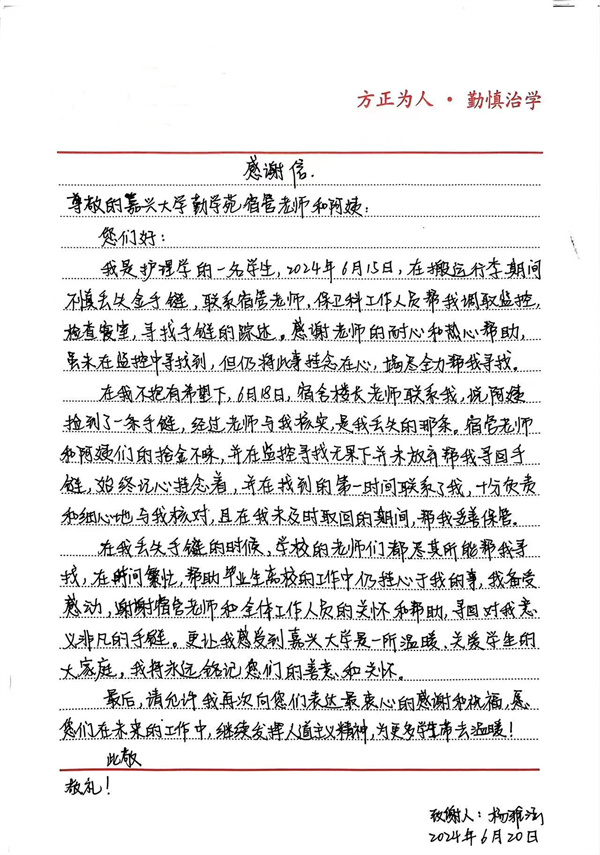 方正为人·勤慎治学
感谢信.
尊敬的嘉兴大学勤学苑宿管老师和阿姨:
您们好:
我是护理学的一名学生,2024年6月15日,在搬运行李期间
不慎丢失金手链,联系宿管老师,保卫科工作人员帮我调取监控,
检查寝室,寻找手链的踪迹。感谢老师的耐心和热心帮助,
虽未在监控中寻找到,但仍将此事挂念在心,竭尽全力帮我寻找。
在我不抱有希望下,6月18日,宿舍楼长老师联系我,说阿姨
捡到了一条手链,经过老师与我核实,是我丢失的那条。宿管老师
和阿姨们的拾金不昧,并在监控寻找无果下并未放弃帮我寻回手
链,始终记心挂念着,并在找到的第一时间联系了我,十分负责
和细心地与我核对,且在我未及时取回的期间,帮我妥善保管。
在我丢失手链的时候,学校的老师们都尽其所能帮我寻
找,在时间繁忙,帮助毕业生离校的工作中仍挂心于我的事,我备受
感动,谢谢宿管老师和全体工作人员的关怀和帮助,寻回对我意
义非凡的手链。更让我感受到嘉兴大学是一所温暖、关爱学生的
大家庭,我将永远铭记您们的善意和关怀。
最后,请允许我再次向您们表达最衷心的感谢和祝福,愿
您们在未来的工作中,继续发挥人道主义精神,为更多学生带去温暖!
此致
敬礼!
致谢人:杨雅
2024年6月20日